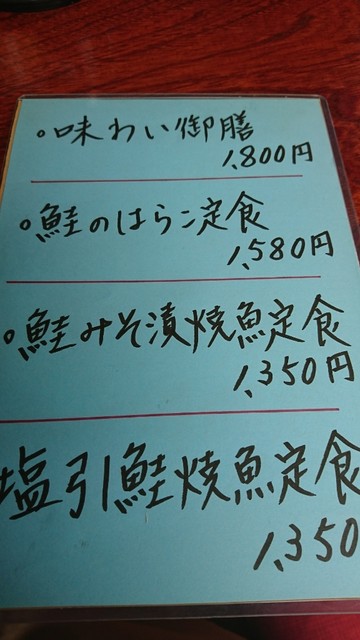 。味わい御膳
1,800円
。鮭のはらこ定食
1,580円
。鮭みそ漬焼魚定食
1,350円
塩引鮭焼魚定食
1,350